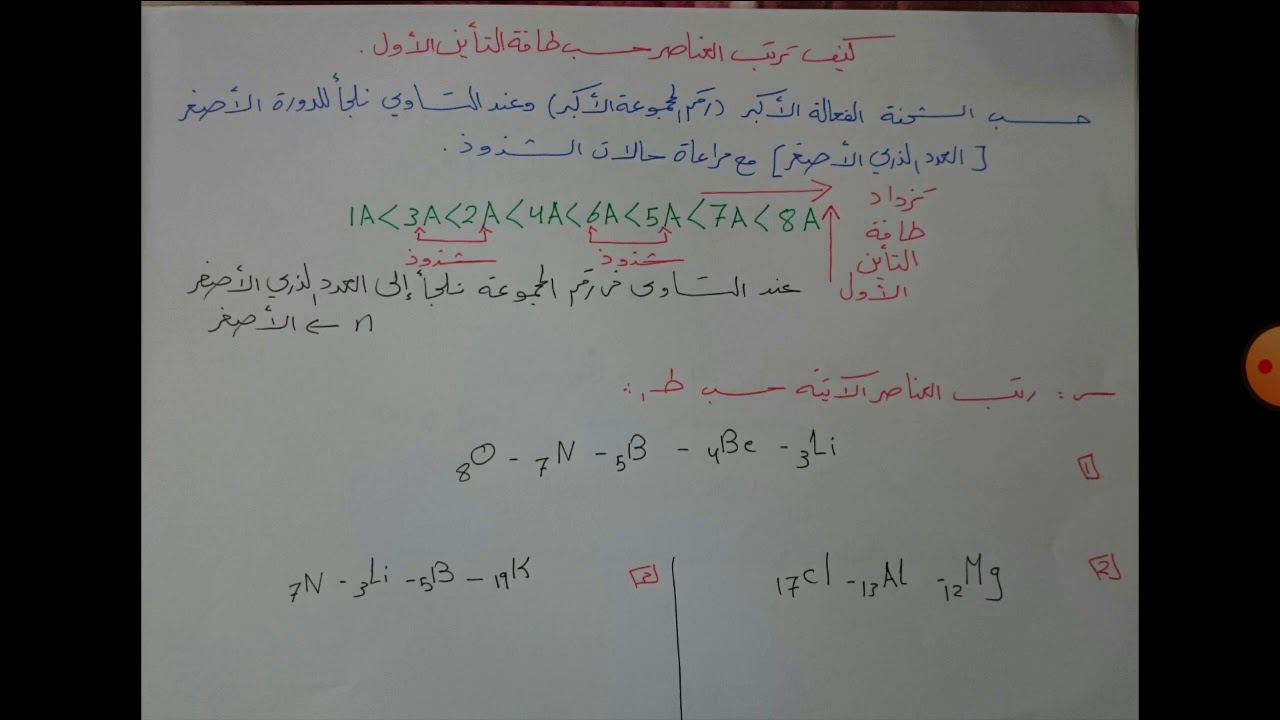 كيف ترتب العناصر حسب طاقة التأين الأول .
حسب الشحنة الفعالة الأكبر (رقم المجموعة الأكبر) وعند التساوي نلجأ للدورة الأصغر
[العدد الذري الأصغر] مع مراعاة حالات الشذوذ .
1A < 3A < 2A < 4A < 6A < 5A < 7A < 8A
تزداد
طاقة
التأين
الأول
شذوذ شذوذ
عند التساوي في رقم المجموعة نلجأ إلى العدد الذري الأصغر
n ← الأصغر
س: رتب العناصر الآتية حسب ط١ :
1 ₈O - ₇N - ₅B - ₄Be - ₃Li
2 ₁₇Cl - ₁₃Al - ₁₂Mg
3 ₇N - ₃Li - ₅B - ₁₉K